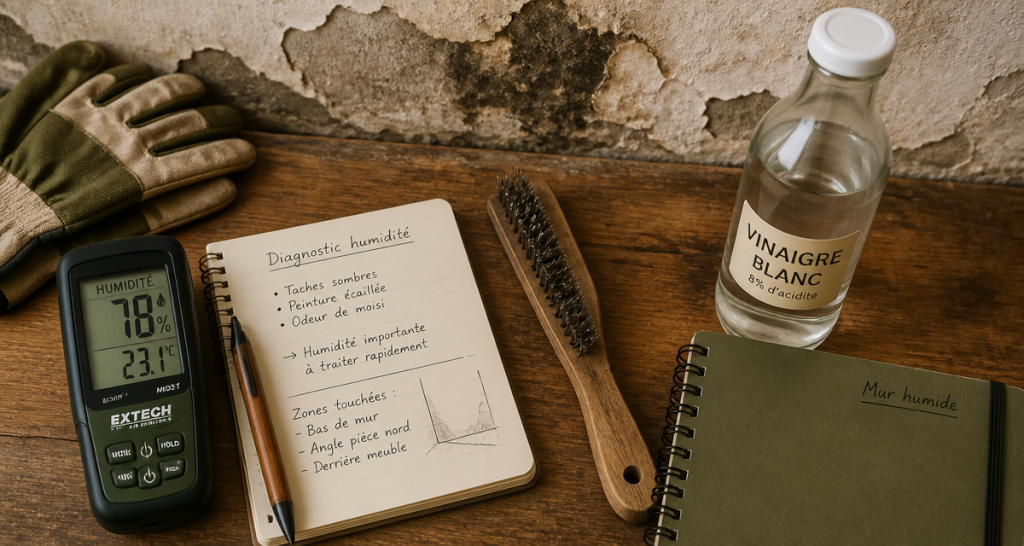 HUMIDITÉ
78%
23.1°C
EXTECH
HOLD
Diagnostic humidité
• Taches sombres
• Peinture écaillée
• Odeur de moisi
→ Humidité importante
à traiter rapidement
Zones touchées :
- Bas de mur
- Angle pièce nord
- Derrière meuble
VINAIGRE
BLANC
8% d'acidite
Mur humide